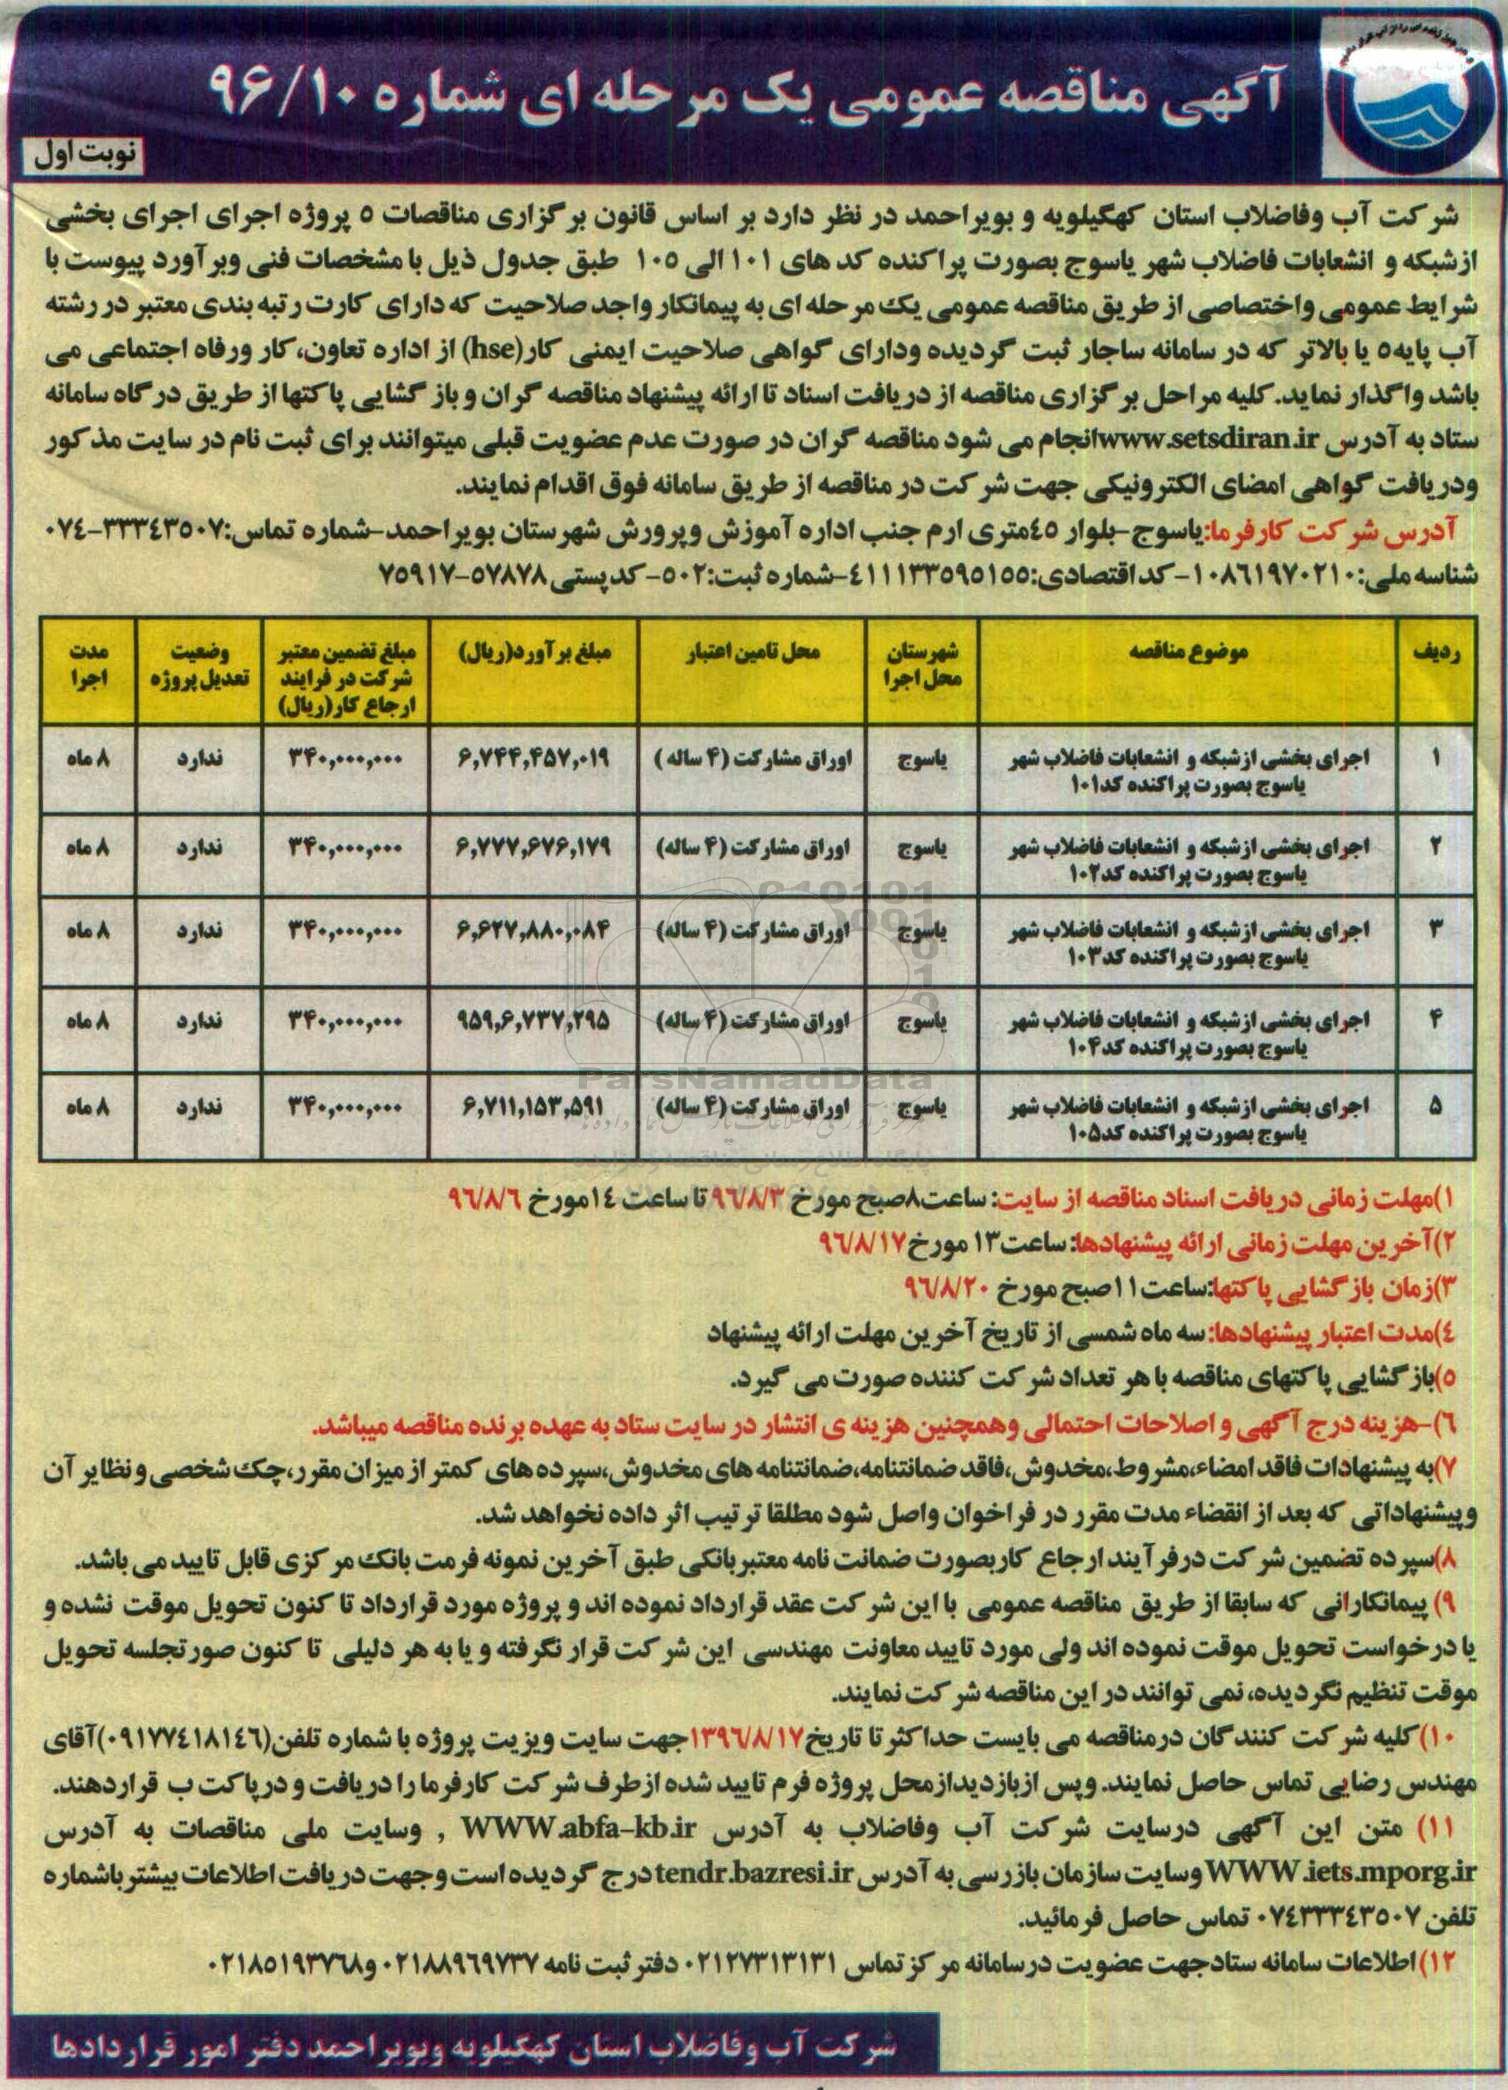 آگهی مناقصه عمومی یک مرحله ای شماره ۹۶/۱۰
نوبت اول
شرکت آب وفاضلاب استان کهگیلویه و بویراحمد در نظر دارد بر اساس قانون برگزاری مناقصات ۵ پروژه اجرای اجرای بخشی
ازشبکه و انشعابات فاضلاب شهر یاسوج بصورت پراکنده کد های ۱۰۱ الی ۱۰۵ طبق جدول ذیل با مشخصات فنی وبرآورد پیوست با
شرایط عمومی واختصاصی از طریق مناقصه عمومی یک مرحله ای به پیمانکار واجد صلاحیت که دارای کارت رتبه بندی معتبر در رشته
آب پایه۵ یا بالاتر که در سامانه ساجار ثبت گردیده ودارای گواهی صلاحیت ایمنی کار(hse) از اداره تعاون،کار ورفاه اجتماعی می
باشد واگذار نماید. کلیه مراحل برگزاری مناقصه از دریافت اسناد تا ارائه پیشنهاد مناقصه گران و باز گشایی پاکتها از طریق درگاه سامانه
ستاد به آدرس www.setsdiran.irانجام می شود مناقصه گران در صورت عدم عضویت قبلی میتوانند برای ثبت نام در سایت مذکور
ودریافت گواهی امضای الکترونیکی جهت شرکت در مناقصه از طریق سامانه فوق اقدام نمایند.
آدرس شرکت کارفرما:یاسوج-بلوار ٤٥متری ارم جنب اداره آموزش وپرورش شهرستان بویراحمد-شماره تماس:۳۳۳٤۳۵۰۷-۰۷٤
شناسه ملی:۱۰۸٦۱۹۷۰۲۱۰-کد اقتصادی:٤۱۱۱۳۳۵۹۵۱۵۵-شماره ثبت:۵۰۲-کدپستی ۵۷۸۷۸-۷۵۹۱۷
ردیف موضوع مناقصه شهرستان محل اجرا محل تامین اعتبار مبلغ برآورد(ریال) مبلغ تضمین معتبر شرکت در فرایند ارجاع کار(ریال) وضعیت تعدیل پروژه مدت اجرا
۱ اجرای بخشی ازشبکه و انشعابات فاضلاب شهر یاسوج بصورت پراکنده کد۱۰۱ یاسوج اوراق مشارکت (۴ ساله ) ۶,۷۴۴,۴۵۷,۰۱۹ ۳۴۰,۰۰۰,۰۰۰ ندارد ۸ ماه
۲ اجرای بخشی ازشبکه و انشعابات فاضلاب شهر یاسوج بصورت پراکنده کد۱۰۲ یاسوج اوراق مشارکت (۴ ساله) ۶,۷۷۷,۶۷۶,۱۷۹ ۳۴۰,۰۰۰,۰۰۰ ندارد ۸ ماه
۳ اجرای بخشی ازشبکه و انشعابات فاضلاب شهر یاسوج بصورت پراکنده کد۱۰۳ یاسوج اوراق مشارکت (۴ ساله) ۶,۶۲۷,۸۸۰,۰۸۴ ۳۴۰,۰۰۰,۰۰۰ ندارد ۸ ماه
۴ اجرای بخشی ازشبکه و انشعابات فاضلاب شهر یاسوج بصورت پراکنده کد۱۰۴ یاسوج اوراق مشارکت (۴ ساله) ۹۵۹,۶,۷۳۷,۲۹۵ ۳۴۰,۰۰۰,۰۰۰ ندارد ۸ ماه
۵ اجرای بخشی ازشبکه و انشعابات فاضلاب شهر یاسوج بصورت پراکنده کد۱۰۵ یاسوج اوراق مشارکت (۴ ساله) ۶,۷۱۱,۱۵۳,۵۹۱ ۳۴۰,۰۰۰,۰۰۰ ندارد ۸ ماه
ParsNamadData
۱)مهلت زمانی دریافت اسناد مناقصه از سایت: ساعت۸صبح مورخ ۹٦/۸/۳ تا ساعت ۱٤مورخ ۹٦/۸/٦
۲)آخرین مهلت زمانی ارائه پیشنهادها: ساعت۱۳ مورخ۹٦/۸/۱۷
۳)زمان بازگشایی پاکتها:ساعت۱۱صبح مورخ ۹٦/۸/۲۰
٤)مدت اعتبار پیشنهادها: سه ماه شمسی از تاریخ آخرین مهلت ارائه پیشنهاد
۵)بازگشایی پاکتهای مناقصه با هر تعداد شرکت کننده صورت می گیرد.
٦)-هزینه درج آگهی و اصلاحات احتمالی وهمچنین هزینه ی انتشار در سایت ستاد به عهده برنده مناقصه میباشد.
۷)به پیشنهادات فاقد امضاء،مشروط،مخدوش،فاقد ضمانتنامه،ضمانتنامه های مخدوش،سپرده های کمتر از میزان مقرر،چک شخصی و نظایر آن
وپیشنهاداتی که بعد از انقضاء مدت مقرر در فراخوان واصل شود مطلقا ترتیب اثر داده نخواهد شد.
۸)سپرده تضمین شرکت درفرآیند ارجاع کاربصورت ضمانت نامه معتبربانکی طبق آخرین نمونه فرمت بانک مرکزی قابل تایید می باشد.
۹) پیمانکارانی که سابقا از طریق مناقصه عمومی با این شرکت عقد قرارداد نموده اند و پروژه مورد قرارداد تا کنون تحویل موقت نشده و
یا درخواست تحویل موقت نموده اند ولی مورد تایید معاونت مهندسی این شرکت قرار نگرفته و یا به هر دلیلی تا کنون صورتجلسه تحویل
موقت تنظیم نگردیده، نمی توانند در این مناقصه شرکت نمایند.
۱۰)کلیه شرکت کنندگان درمناقصه می بایست حداکثر تا تاریخ۱۳۹٦/۸/۱۷جهت سایت ویزیت پروژه با شماره تلفن(۰۹۱۷۷٤۱۸۱٤٦)آقای
مهندس رضایی تماس حاصل نمایند. وپس ازبازدیدازمحل پروژه فرم تایید شده ازطرف شرکت کارفرما را دریافت و درپاکت ب قراردهند.
۱۱) متن این آگهی درسایت شرکت آب وفاضلاب به آدرس WWW.abfa-kb.ir , وسایت ملی مناقصات به آدرس
WWW.iets.mporg.ir وسایت سازمان بازرسی به آدرس tendr.bazresi.ir درج گردیده است وجهت دریافت اطلاعات بیشتر باشماره
تلفن ۰۷٤۳۳۳٤۳۵۰۷ تماس حاصل فرمائید.
۱۲)اطلاعات سامانه ستادجهت عضویت درسامانه مرکزتماس ۰۲۱۲۷۳۱۳۱۳۱ دفتر ثبت نامه ۰۲۱۸۸۹٦۹۷۳۷ و۰۲۱۸۵۱۹۳۷٦۸
شرکت آب وفاضلاب استان کهگیلویه وبویراحمد دفتر امور قراردادها